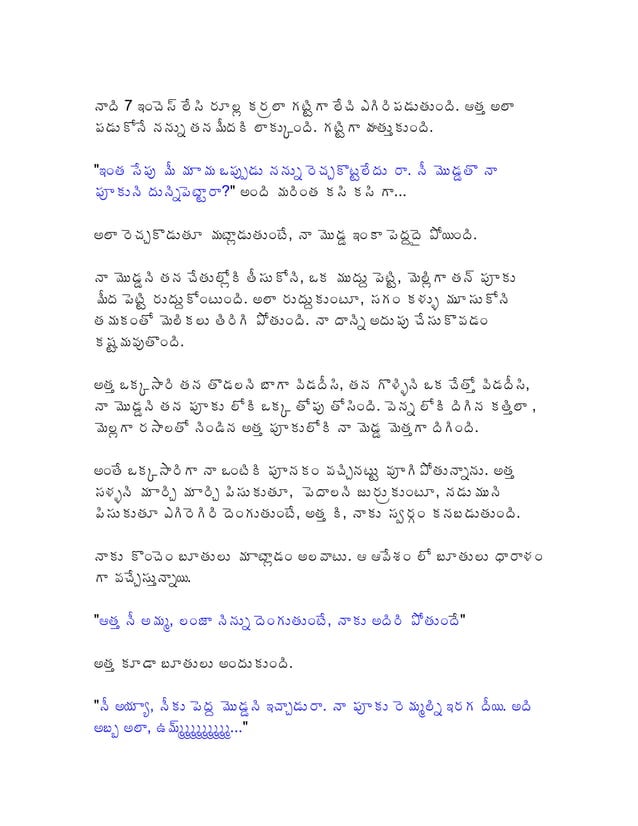 నాది 7 ఇంచెస్ లేసి రూల్ల కర్రలా గట్టిగా లేచి ఎగిరిపడుతుంది. ఆత్త అలా
పడుకోనే నన్ను తనమీదకి లాక్కుంది. గట్టిగా హత్తుకుంది.
"ఇంత సేపు మీ మామ ఒప్పుడు నన్ను రెచ్చకొట్టలేదు రా. నీ మొడ్డతొ నా
పూకుని దున్నిపెట్టారా?" అంది మరింత కసి కసి గా...
అలా రెచ్చకొడుతూ మట్లాడుతుంటే, నా మొడ్డ ఇంకా పెద్దదై పోయింది.
నా మొడ్డని తన చేతుల్లోకి తీసుకోని, ఒక ముద్దు పెట్టి, మెల్లిగా తన్ పూకు
మీద పెట్టి రుద్దుకోంటుంది. అలా రుద్దుకుంటూ, సగం కళ్ళు మూసుకోని
తమకంతో మెలికలు తిరిగి పోతుంది. నా దాన్ని అదుపు చేసుకొవడం
కష్టమవుతొంది.
అత్త ఒక్కసారి తన తొడలని బాగా విడదీసి, తన గొళ్ళిని ఒక చేత్తో విడదీసి,
నా మొడ్డని తన పూకు లోకి ఒక్క తోపు తోసింది. పెన్న లోకి దిగిన కత్తిలా ,
మెల్లగా రసాలతో నిండిన అత్త పూకులోకి నా మెడ్డ మెత్తగా దిగింది.
అంతే ఒక్కసారిగా నా ఒంటికి పూనకం వచ్చినట్టు పూగిపోతున్నాను. అత్త
సళ్ళని మార్చి మార్చి పిసుకుతూ, పెదాలని జుర్రుకుంటూ, నడుముని
పిసుకుతూ ఎగిరెగిరి దెంగుతుంటే, అత్త కి, నాకు స్వర్గం కనబడుతుంది.
నాకు కొంచెం బూతులు మాట్లాడం అలవాటు. ఆ ఆవేశం లో బూతులు ధారాళం
గా వచ్చేస్తున్నాయి.
"ఆత్త నీ అమ్మ, లంజా నిన్ను దెంగుతుంటే, నాకు అదిరి పోతుందే"
అత్త కూడా బూతులు అందుకుంది.
"నీ అయ్యా, నీకు పెద్ద మొడ్డని ఇచ్చాడురా. నా పూకు రెమ్మల్ని ఇరగ దీయి. అది
అబ్బ అలా, ఉమ్